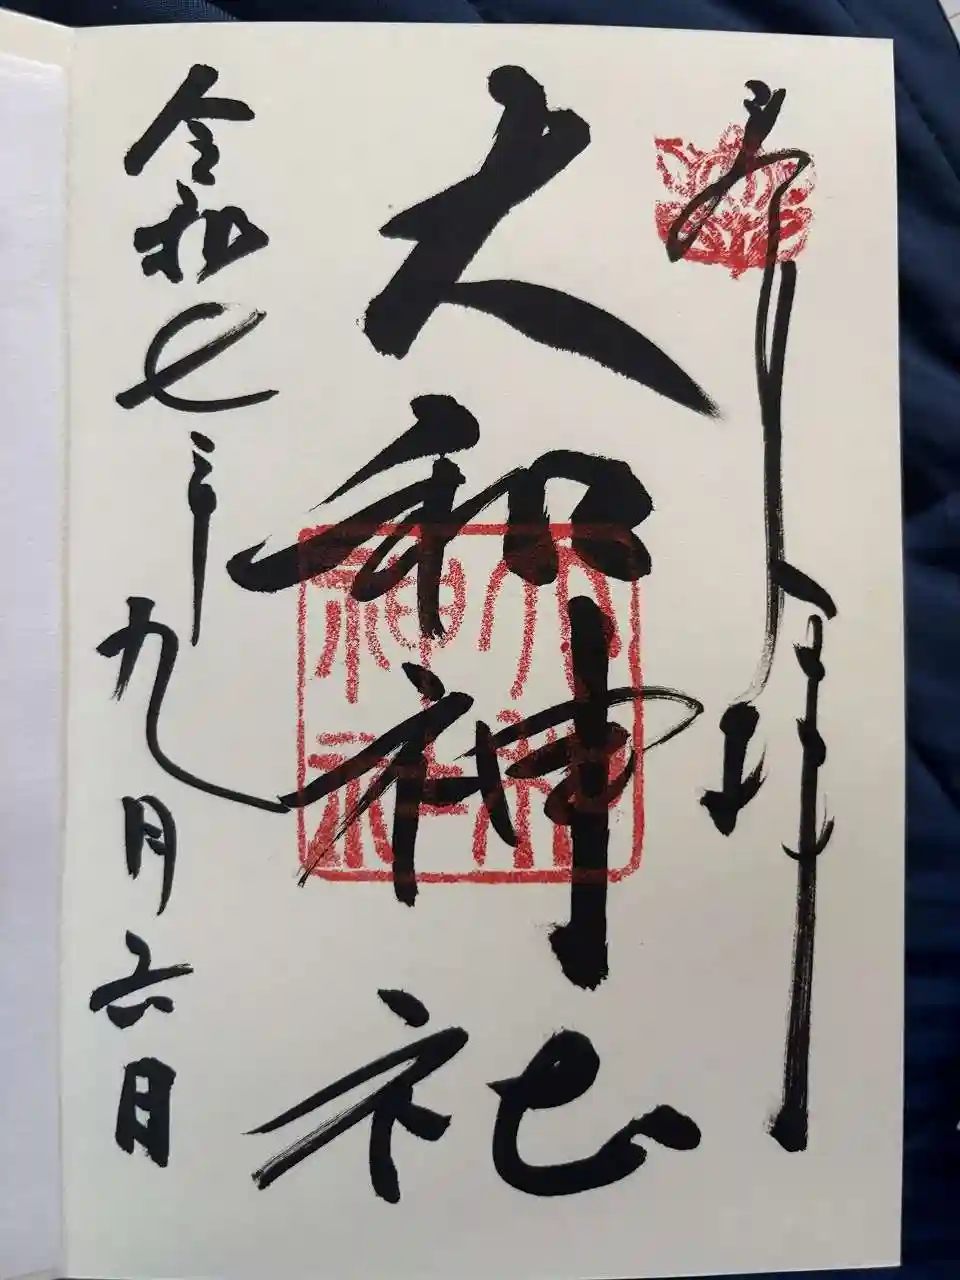 奉拝
大和神社
大和神社
令和七年九月六日